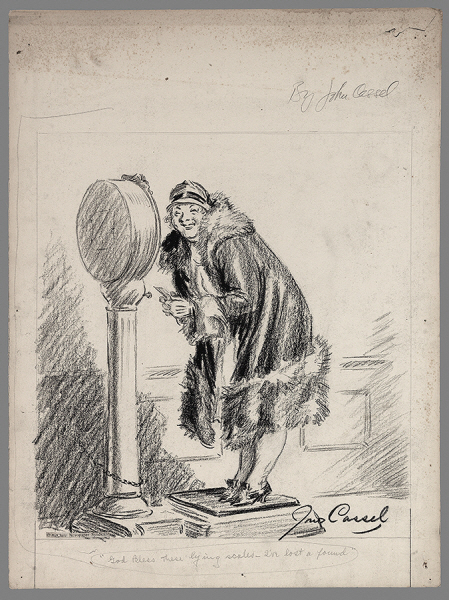 By John Cassel
Jno Cassel
"God bless these lying scales - I've lost a pound